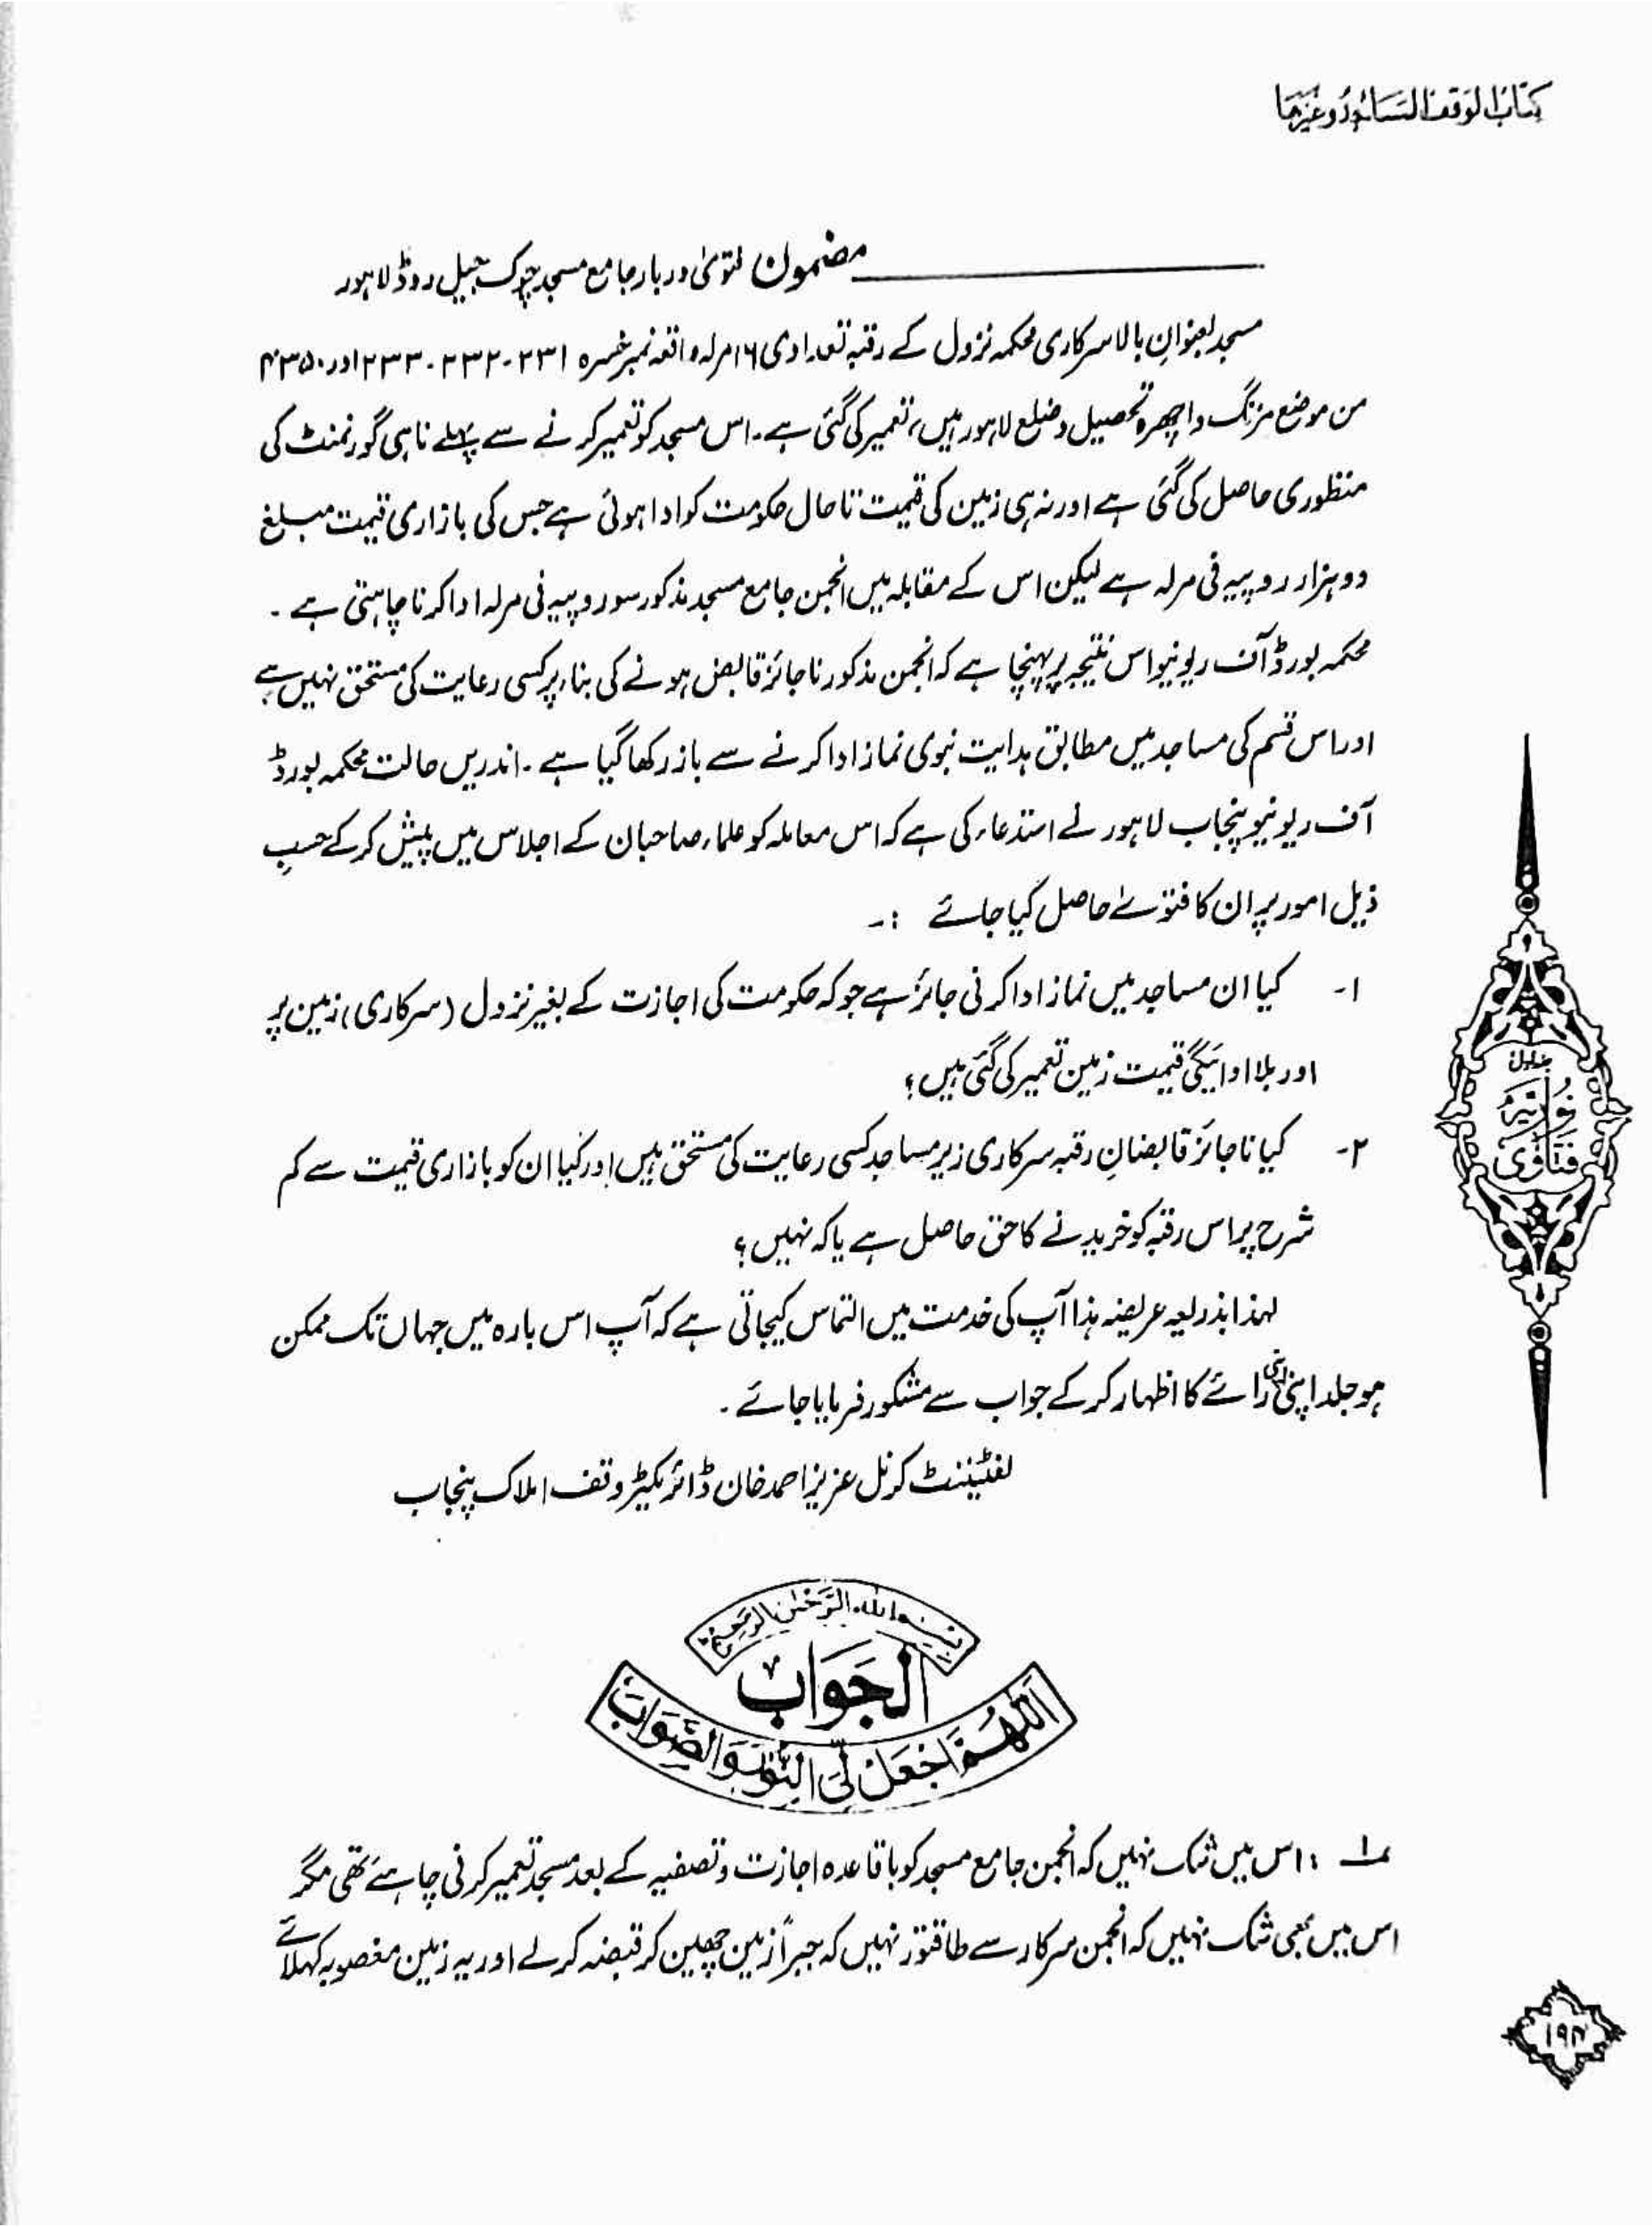 کتاب الوقف المساجد وغیرها
مضمون فتویٰ دربار جامع مسجد چوک جیل روڈ لاہور
مسجد بعنوانِ بالا سرکاری محکمہ نزول کے رقبہ تعدادی ۱۶ مرلہ واقعہ نمبر خسرہ ۲۳۱-۲۳۲-۲۳۳ اور ۴۳۵۰
من موضع مزنگ و اچھرہ تحصیل و ضلع لاہور میں، تعمیر کی گئی ہے۔ اس مسجد کو تعمیر کرنے سے پہلے نا ہی گورنمنٹ کی
منظوری حاصل کی گئی ہے اور نہ ہی زمین کی قیمت تا حال حکومت کو ادا ہوئی ہے جس کی بازاری قیمت مبلغ
دو ہزار روپیہ فی مرلہ ہے لیکن اس کے مقابلہ میں انجمن جامع مسجد مذکور سو روپیہ فی مرلہ ادا کرنا چاہتی ہے۔
محکمہ بورڈ آف ریونیو اس نتیجہ پر پہنچا ہے کہ انجمن مذکور ناجائز قابض ہونے کی بناء پر کسی رعایت کی مستحق نہیں ہے
اور اس قسم کی مساجد میں مطابق ہدایت نبوی نماز ادا کرنے سے باز رکھا گیا ہے۔ اندریں حالت محکمہ بورڈ
آف ریونیو پنجاب لاہور نے استدعاء کی ہے کہ اس معاملہ کو علماء صاحبان کے اجلاس میں پیش کر کے حسبِ
ذیل امور پر ان کا فتوےٰ حاصل کیا جائے :۔
۱- کیا ان مساجد میں نماز ادا کرنی جائز ہے جو کہ حکومت کی اجازت کے بغیر نزول (سرکاری) زمین پر
اور بلا ادائیگی قیمت زمین تعمیر کی گئی ہیں؟
۲- کیا ناجائز قابضانِ رقبہ سرکاری زیر مساجد کسی رعایت کی مستحق ہیں اور کیا ان کو بازاری قیمت سے کم
شرح پر اس رقبہ کو خریدنے کا حق حاصل ہے یا کہ نہیں؟
لہذا بذریعہ عریضہ ہذا آپ کی خدمت میں التماس کیجاتی ہے کہ آپ اس بارہ میں جہاں تک ممکن
ہو جلد اپنی اپنی رائے کا اظہار کر کے جواب سے مشکور فرمایا جائے۔
لفٹیننٹ کرنل عزیز احمد خان ڈائریکٹر وقف املاک پنجاب
جلد اول
نوریہ
فتاویٰ
بسم الله الرحمٰن الرحیم
الجَوَاب
اَللّٰهُمَّ اجْعَلْ لِّیَ النُّوْرَ وَالصَّوَابَ
۱ : اس میں شک نہیں کہ انجمن جامع مسجد کو باقاعدہ اجازت و تصفیہ کے بعد مسجد تعمیر کرنی چاہئے تھی مگر
اس میں بھی شک نہیں کہ انجمن سرکار سے طاقتور نہیں کہ جبراً زمین چھین کر قبضہ کر لے اور یہ زمین مغصوبہ کہلائے